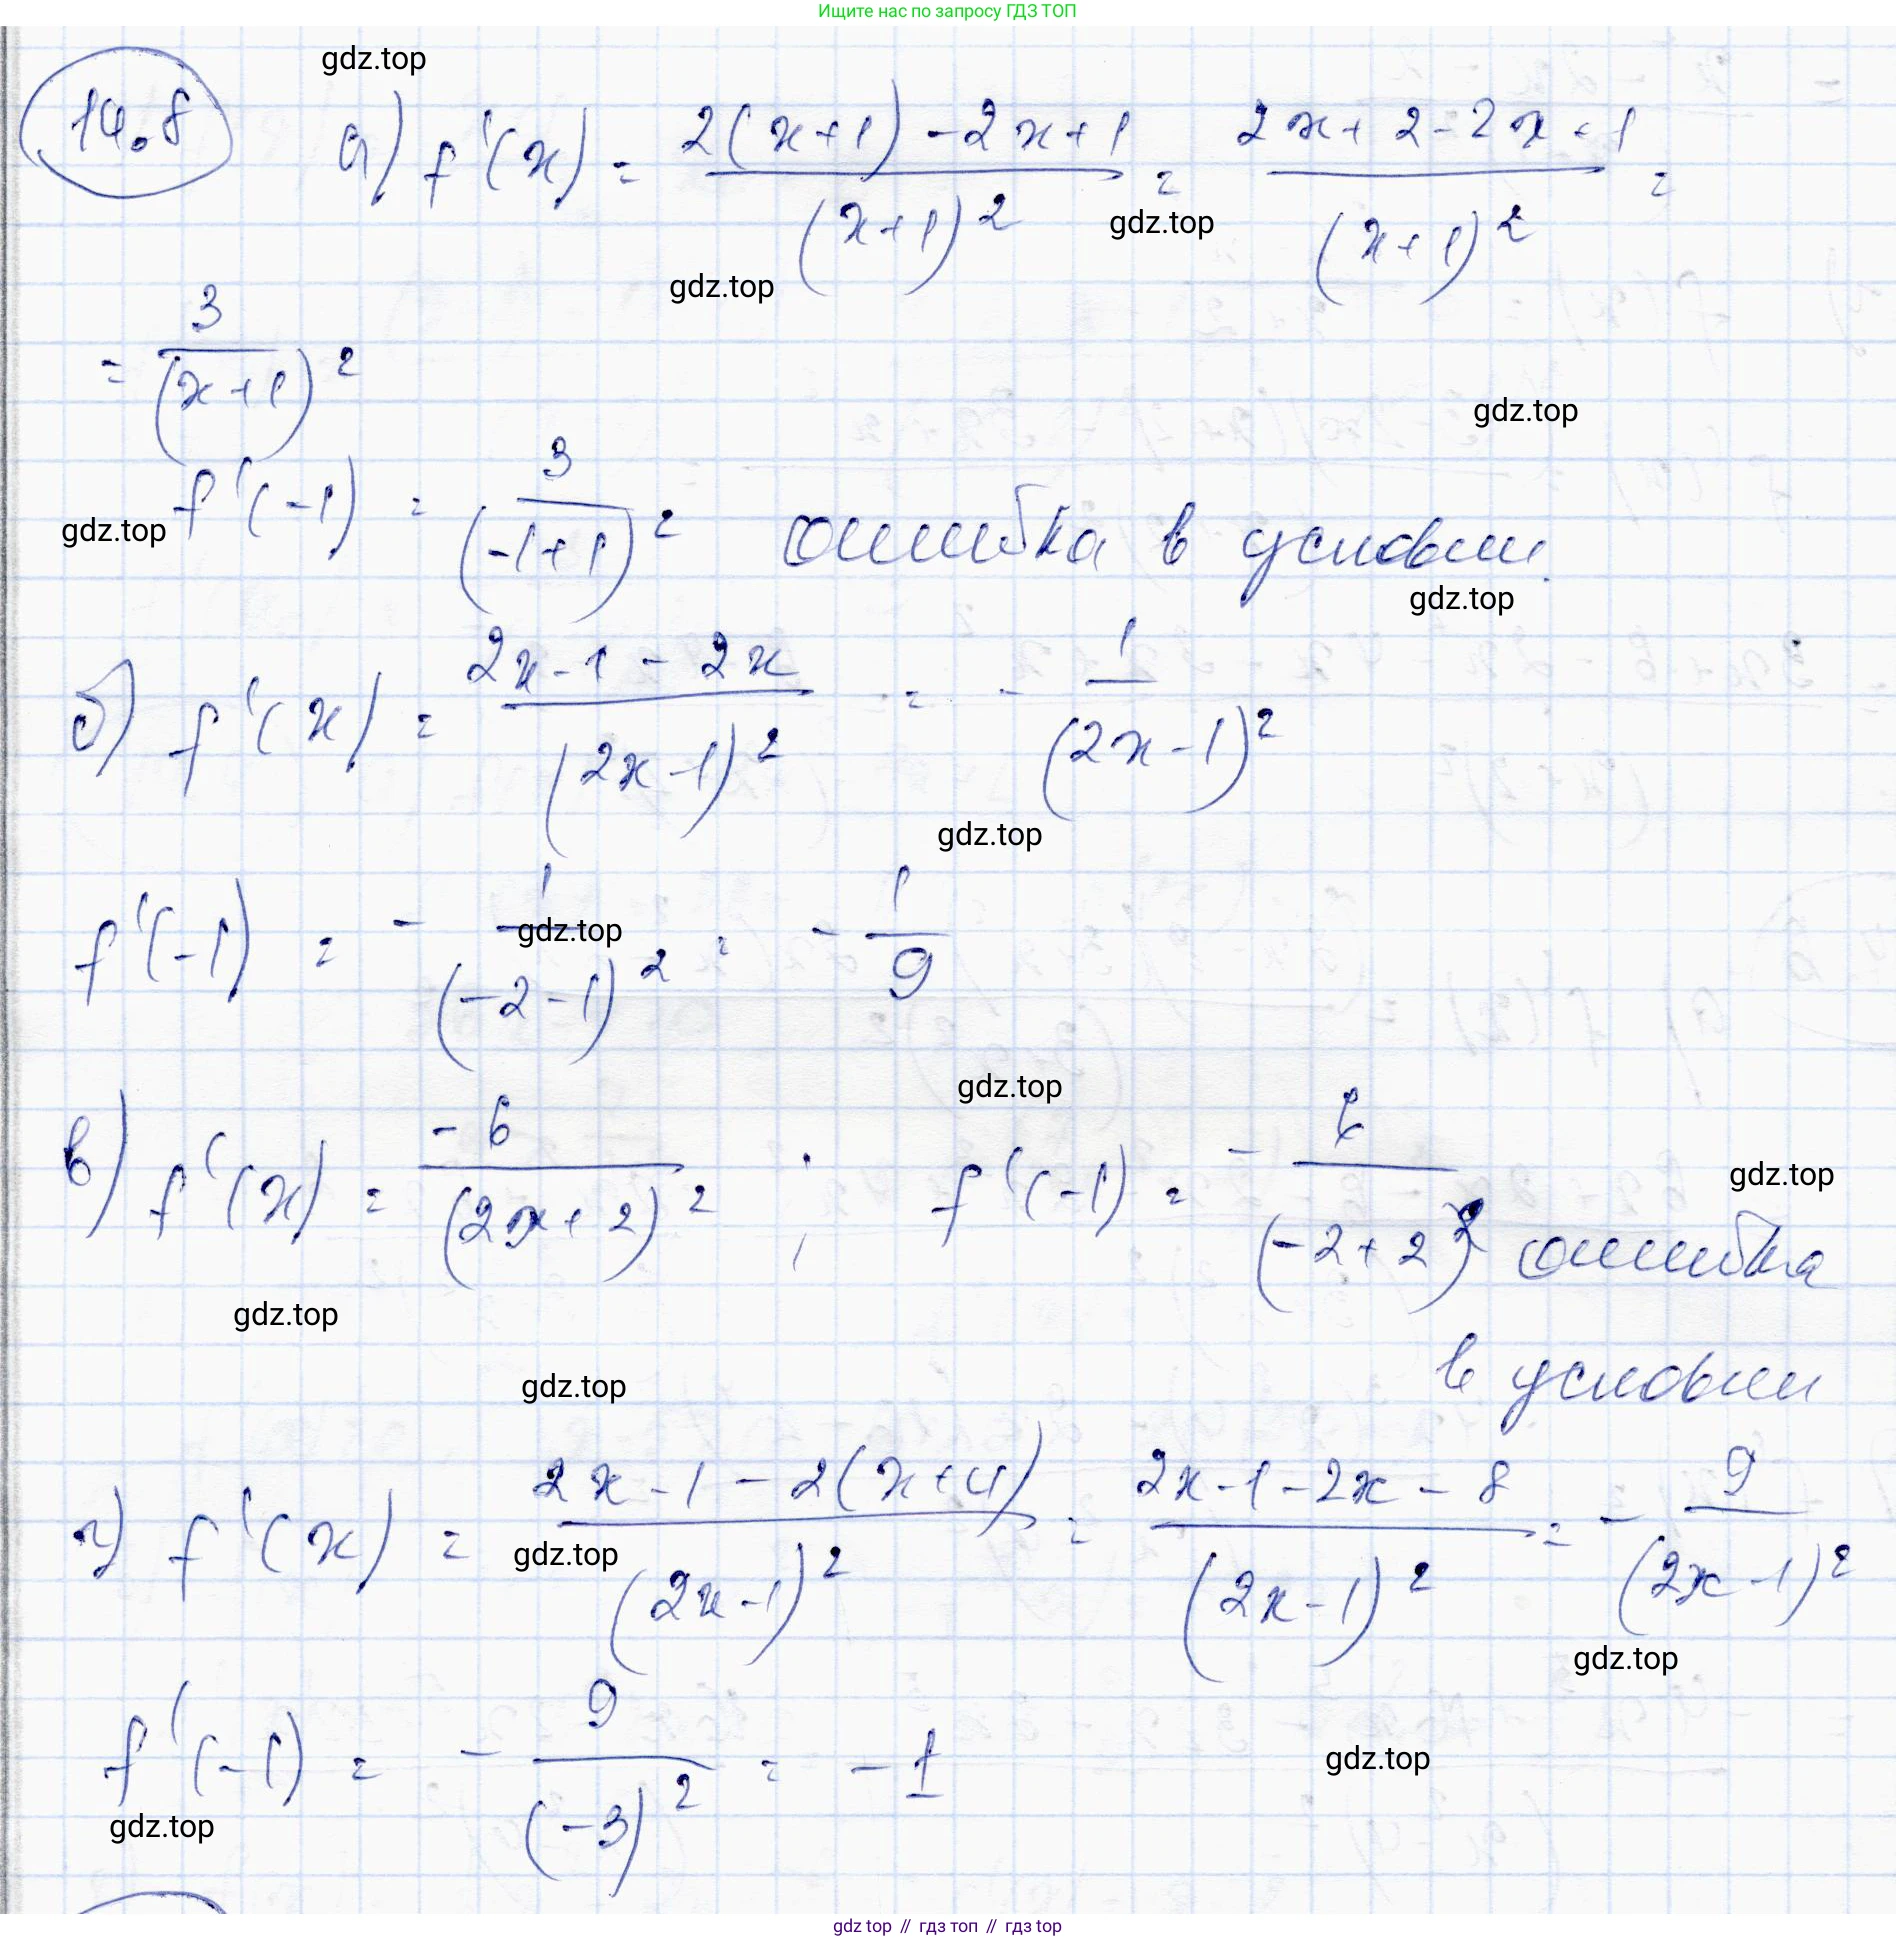 Ищите нас по запросу ГДЗ ТОП
14.8
gdz.top
а) f'(x) = (2(x+1) - 2x+1)/(x+1)² = (2x+2-2x+1)/(x+1)² =
gdz.top
gdz.top
= 3/(x+1)²
gdz.top
f'(-1) = 3/(-1+1)² ошибка в условии.
gdz.top
gdz.top
б) f'(x) = (2x-1-2x)/(2x-1)² = - 1/(2x-1)²
gdz.top
f'(-1) = - 1/(-2-1)² = - 1/9
gdz.top
gdz.top
в) f'(x) = -6/(2x+2)² ; f'(-1) = - 6/(-2+2)² ошибка
gdz.top
gdz.top
в условии
gdz.top
г) f'(x) = (2x-1-2(x+4))/(2x-1)² = (2x-1-2x-8)/(2x-1)² = - 9/(2x-1)²
gdz.top
gdz.top
f'(-1) = - 9/(-3)² = -1
gdz.top
gdz.top
gdz top // гдз топ // гдз top